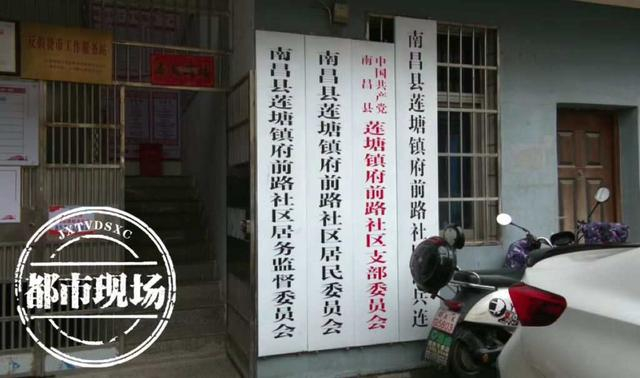 反假货币工作服务站
南昌县莲塘镇府前路社区居务监督委员会
南昌县莲塘镇府前路社区居民委员会
中国共产党
南昌县
莲塘镇府前路社区支部委员会
南昌县莲塘镇府前路社
兵连
JXTVDSXC
都市现场